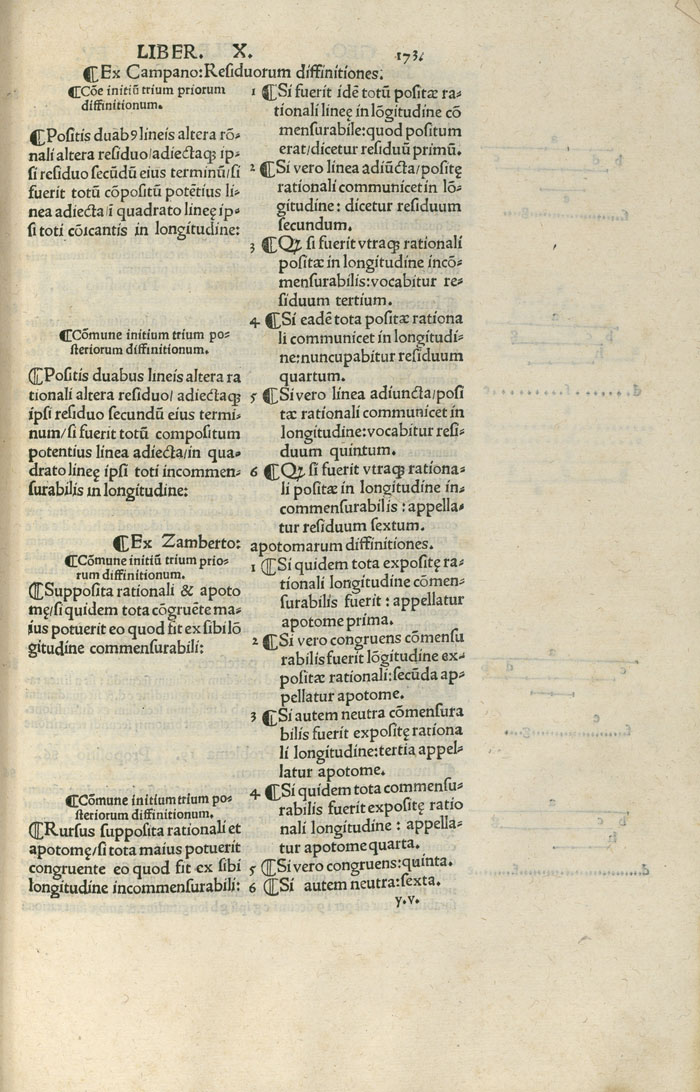 LIBER. X. 173.
¶Ex Campano: Residuorum diffinitiones.
¶Cōe initiū trium priorum
diffinitionum.
¶Positis duabꝰ lineis altera rō⸗
nali altera residuo/adiectaqꝫ ip⸗
si residuo secūdū eius terminū/si
fuerit totū cōpositū potētius li⸗
nea adiecta/ī quadrato lineę ip⸗
si toti cōicantis in longitudine:
1 ¶Si fuerit idē totū positæ ra⸗
tionali lineę in lōgitudine cō
mensurabile: quod positum
erat/dicetur residuū primū.
2 ¶Si vero linea adiūcta/positę
rationali communicet in lō⸗
gitudine: dicetur residuum
secundum.
3 ¶Qꝫ si fuerit vtraqꝫ rationali
positæ in longitudine incō⸗
mensurabilis: vocabitur re⸗
siduum tertium.
¶Cōmune initium trium po⸗
steriorum diffinitionum.
¶Positis duabus lineis altera ra
tionali altera residuo/ adiectaqꝫ
ipsi residuo secundū eius termi⸗
num/si fuerit totū compositum
potentius linea adiecta/in qua⸗
drato lineę ipsi toti incommen⸗
surabilis in longitudine:
4 ¶Si eadē tota positæ rationa
li communicet in longitudi⸗
ne: nuncupabitur residuum
quartum.
5 ¶Si vero linea adiuncta/posi
tæ rationali communicet in
longitudine: vocabitur resi⸗
duum quintum.
6 ¶Qꝫ si fuerit vtraqꝫ rationa⸗
li positæ in longitudine in⸗
commensurabilis : appella⸗
tur residuum sextum.
¶Ex Zamberto: apotomarum diffinitiones.
¶Cōmune initiū trium prio⸗
rum diffinitionum.
¶Supposita rationali & apoto
mę/si quidem tota cōgruēte ma⸗
ius potuerit eo quod fit ex sibi lō
gitudine commensurabili:
1 ¶Si quidem tota expositę ra⸗
tionali longitudine cōmen⸗
surabilis fuerit : appellatur
apotome prima.
2 ¶Si vero congruens cōmensu
rabilis fuerit lōgitudine ex⸗
positæ rationali: secūda ap⸗
pellatur apotome.
3 ¶Si autem neutra cōmensura
bilis fuerit expositę rationa
li longitudine: tertia appel⸗
latur apotome.
¶Cōmune initium trium po⸗
steriorum diffinitionum.
¶Rursus supposita rationali et
apotomę/si tota maius potuerit
congruente eo quod fit ex sibi
longitudine incommensurabili:
4 ¶Si quidem tota commensu⸗
rabilis fuerit expositę ratio
nali longitudine : appella⸗
tur apotome quarta.
5 ¶Si vero congruens: quinta.
6 ¶Si autem neutra: sexta.
y.v.